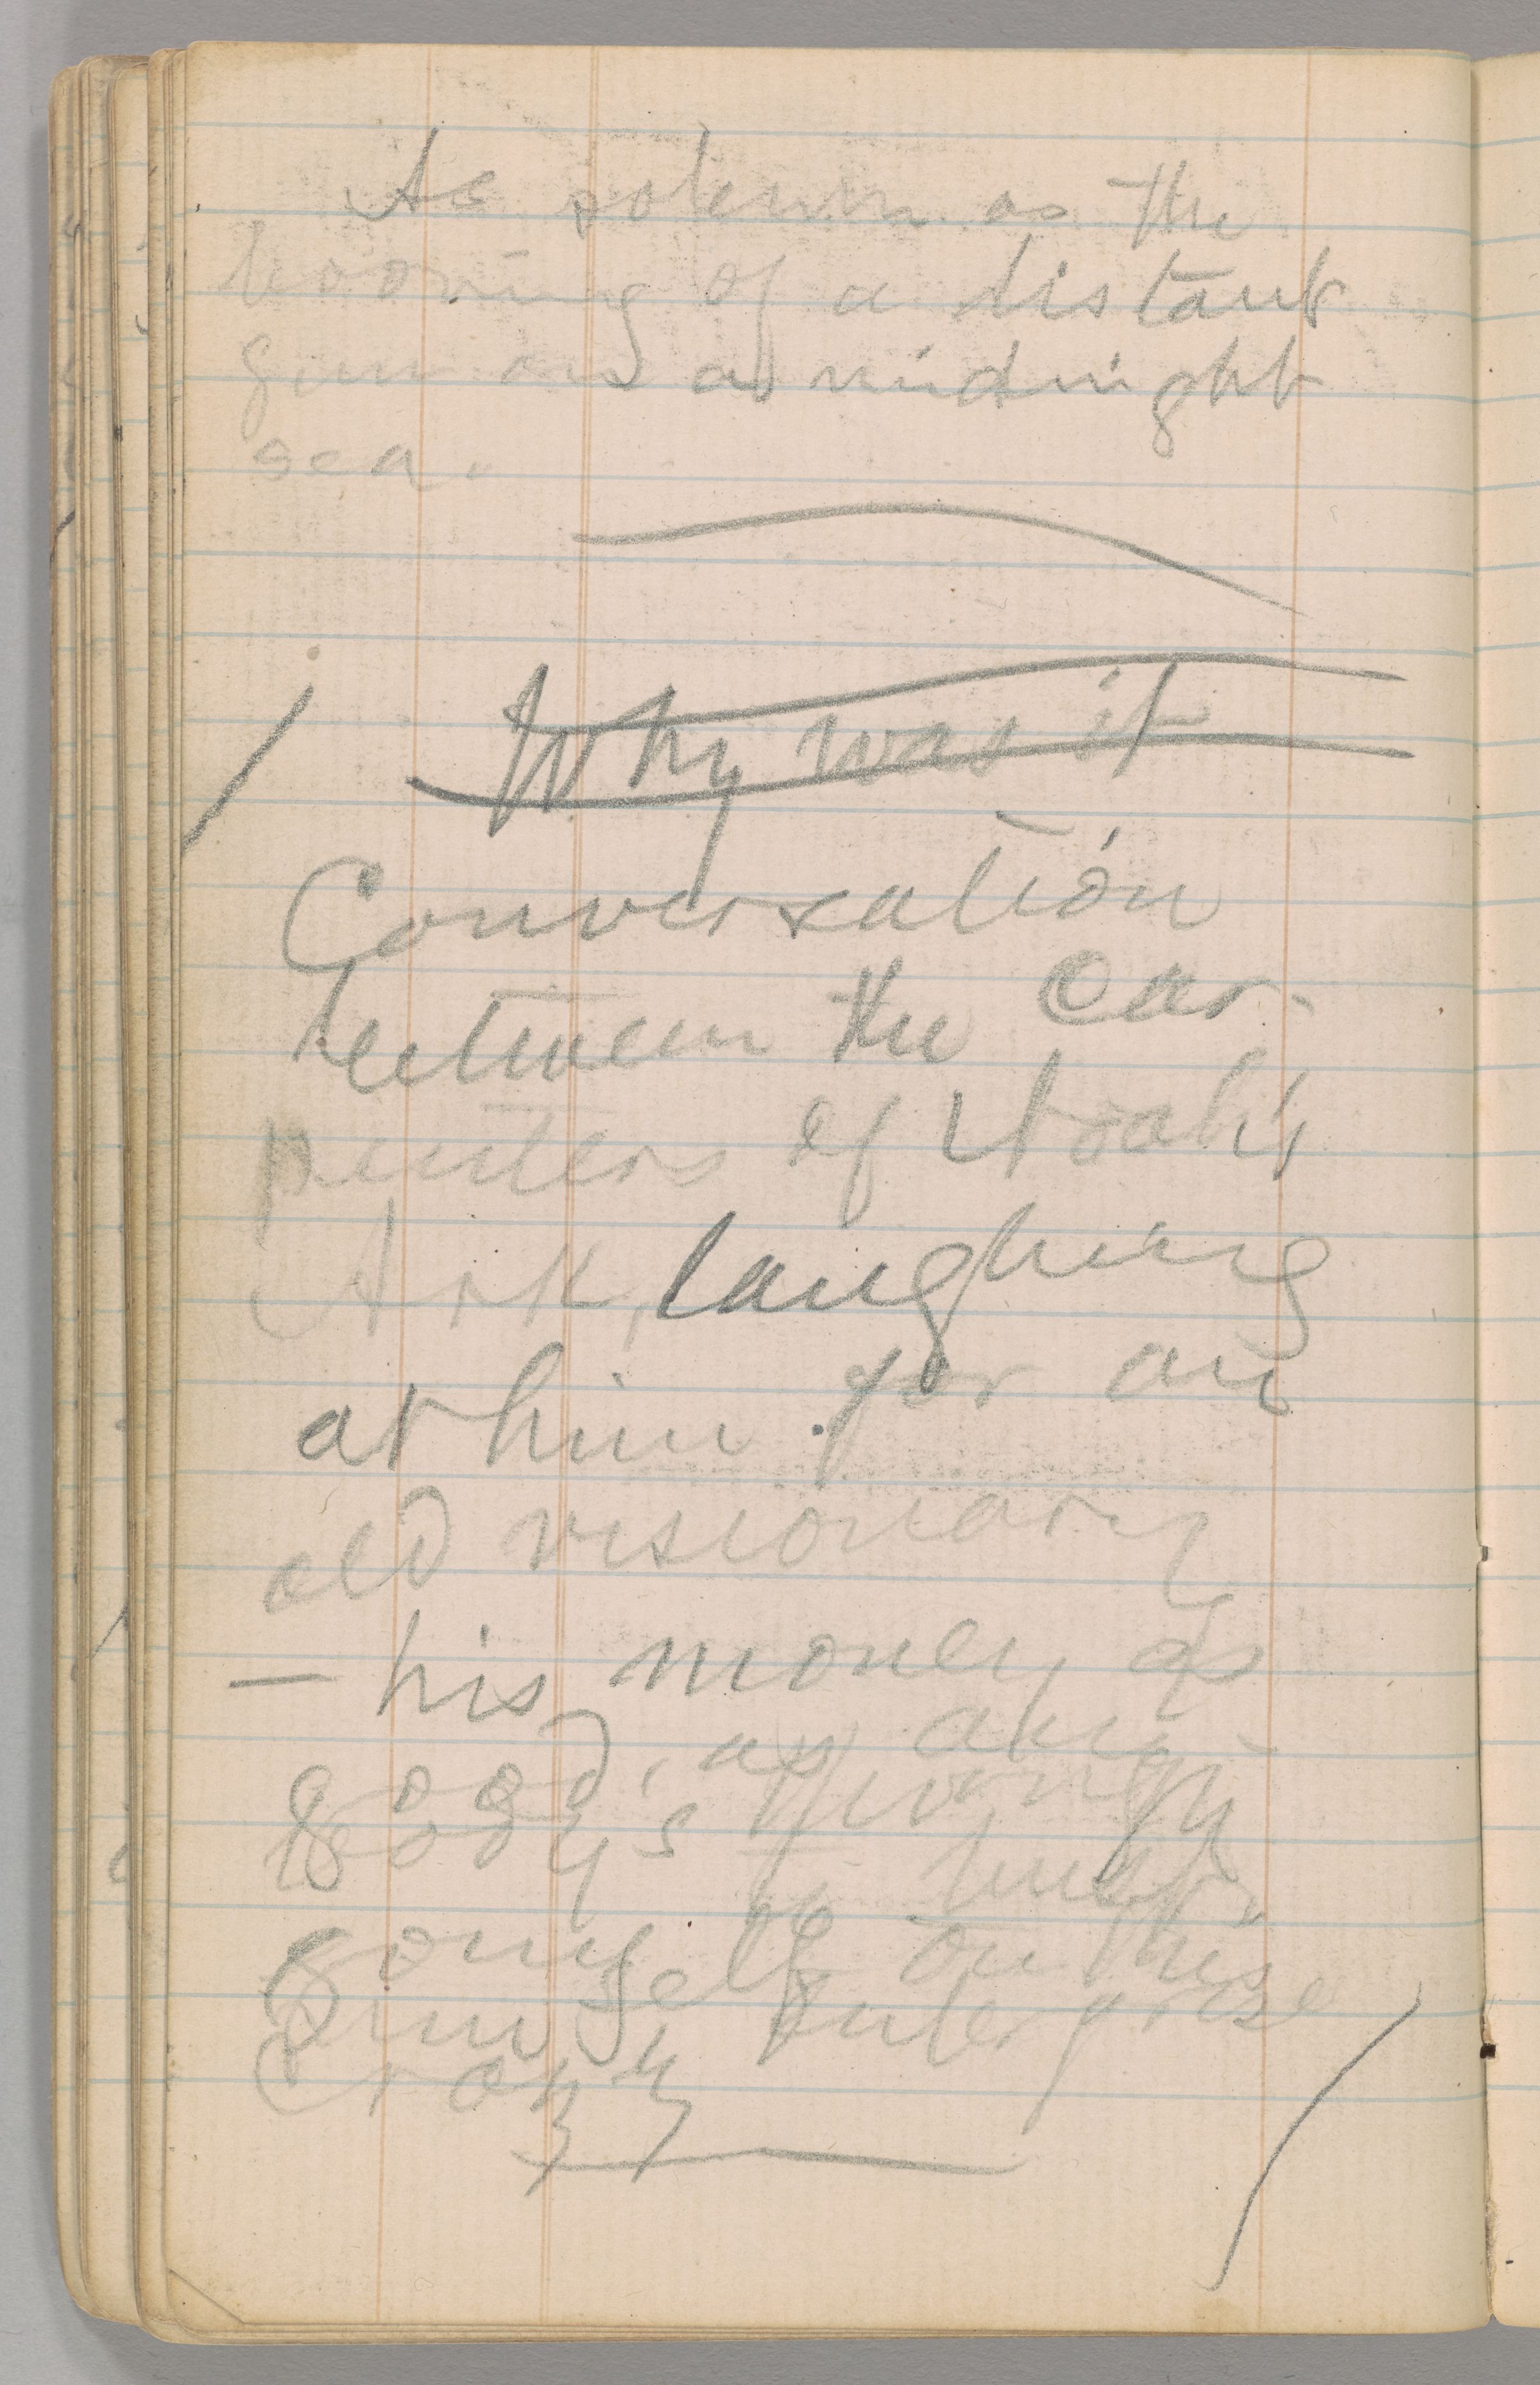 As solemn as the
booming of a distant
gun on a midnight
sea.
Why was it
Conversation
between the Car-
penters of Noah's
Ark, laughing
at him for an
old visionary
— his money as
good, as any-
body's though
going to bust
himself on this
enterprise
crazy